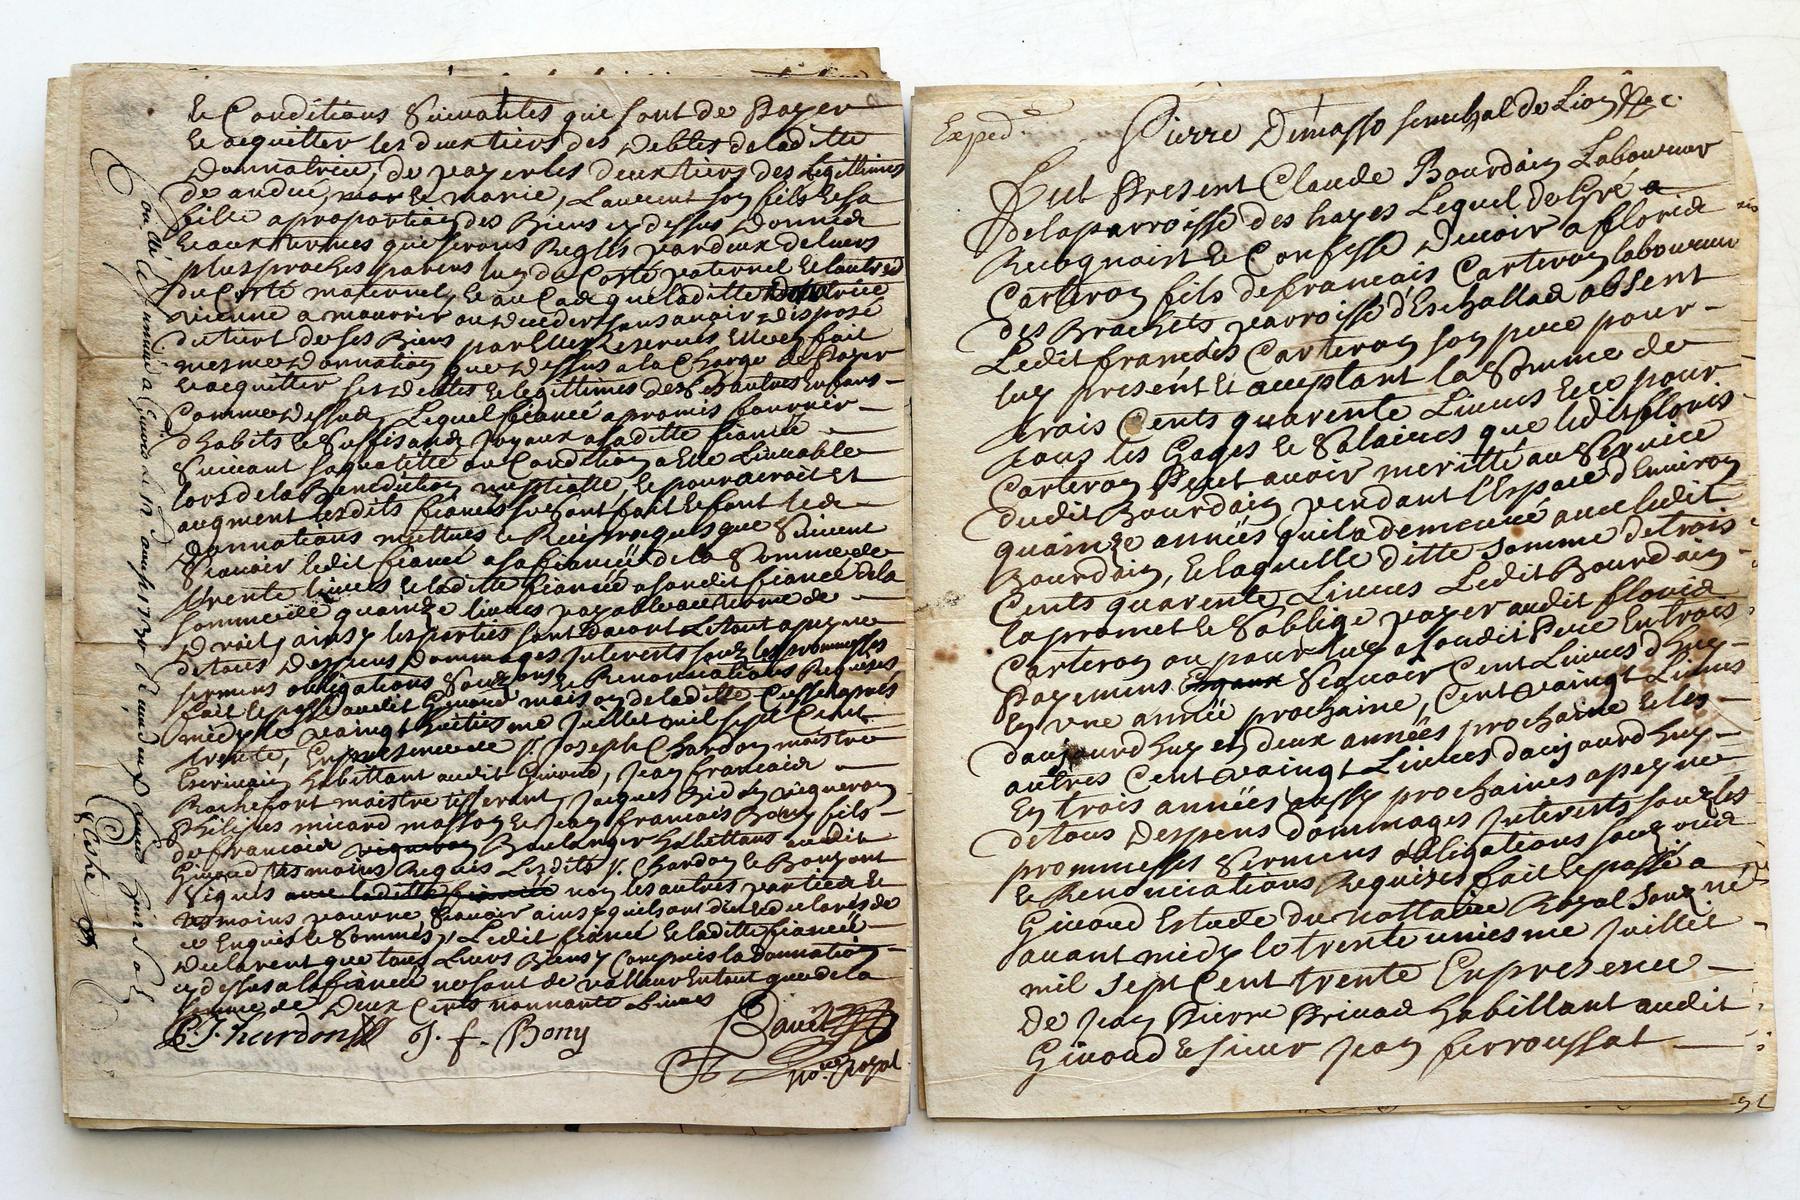 le Conditions Suivantes qui sont de Payer
le acquitter les deux tiers des debtes de laditte
Donnatrice, de payer les deux tiers des Legittimes
de andue, mar le marie, Laurent son fils le sa
fille a proportion des Biens cy dessus Donnés
le aux termes que seront Reglés par deux de leurs
plus proches parens luy du Costé paternel le lautre
du Costé maternel, le au Cas que laditte Donnatrice
vienne a mourrir ou deceder sans avoir disposé
du tiert de ses Biens par Elle Reservés Elle en fait
mesme donnation que dessus a la Charge de Payer
le acquitter ses debtes le legittimes de ses autres Enfans
Comme dessus, Lequel fiancé a promis fournir
dhabits le Suffisans Joyaux a laditte fiancée
Suivant sa quatitté ou Condition a Elle Livrable
lors de la Benediction nuptialle, le pour acroit et
augment lesdits fiancés se sont fait le font lede
Donnations mutues le Reciproques que Suivent
Scavoir ledit fiancé a sa fiancée de la Somme de
trente livres le laditte fiancée a sondit fiancé de la
somme de quainze livres payable au terme de
droit, ainsy les parties sont dacort Letout a peyne
de tous Despens Dommages Interests souz les prommesses
sermens obligations Souzmons le Renonciations Requises
fait le passé audit Givord maison de laditte apres
midy le vaingt huitiesme Juillet mil sept Cent
trente, En presence de Sr. Joseph Chardon maistre
Escrivain habittant audit Givord, Jean francois
Rochefort maistre tisserant, Jacques Vigneron
Philipes micard masson le Jean francois Bony fils
de francois vigneron Boulanger habittans audit
Givord tesmoins Requis Lesdits Sr. Chardon le Bony ont
Signés avec laditte fiancée non les autres parties le
tesmoins pour ne scavoir ainsy quils ont dit le declarés de
ce Enquis le Sommés, Ledit fiancé le laditte fiancée
declarent que tous Leurs Biens y Compris la donnation
cy dessus a la fiancée ne sont de valleur Entout que de la
somme de Deux Cents nonnante Livres
Chardon J. f. Bony
no.re Royal
aoust 1730
Exped.
Pierre Dumasso senechal de Lion &c.
Fut Present Claude Bourdain Laboureur
de la parroisse des hayes Lequel de Gré a
Recognoist le Confesse devoir a floris
Carteron fils de francois Carteron laboureur
des Brachets parroisse dEschallas absent
Ledit francois Carteron son pere pour
luy present le aceptant la Somme de
trois Cents quarente Livres le ce pour
tous les Gages le Salaires que ledit floris
Carteron Peut avoir meritté au Service
dudit Bourdain pendant l'Espace d'Environ
quainze années quil a demeuré avec ledit
Bourdain, le laquelle ditte somme de trois
Cents quarente Livres Ledit Bourdain
la promet le S'oblige payer audit floris
Carteron ou pour luy a sondit Pere En trois
Payemens Egaux Scavoir Cent Livres d'huy
En une année prochaine, Cent vaingt Livres
daujourdhuy en deux années prochaine le les
autres Cent vaingt Livres daujourdhuy
En trois années aussy prochaines a peyne
de tous Despens dommages Interests souz les
prommesses Sermens obligations souz
le Renonciations Requises fait le passé a
Givord Estude du nottaire Royal Souzné
avant midy le trente uniesme Juillet
mil sept Cent trente En presence
De Jean Pierre Privas habittant audit
Givord le sieur Jean ferroussat